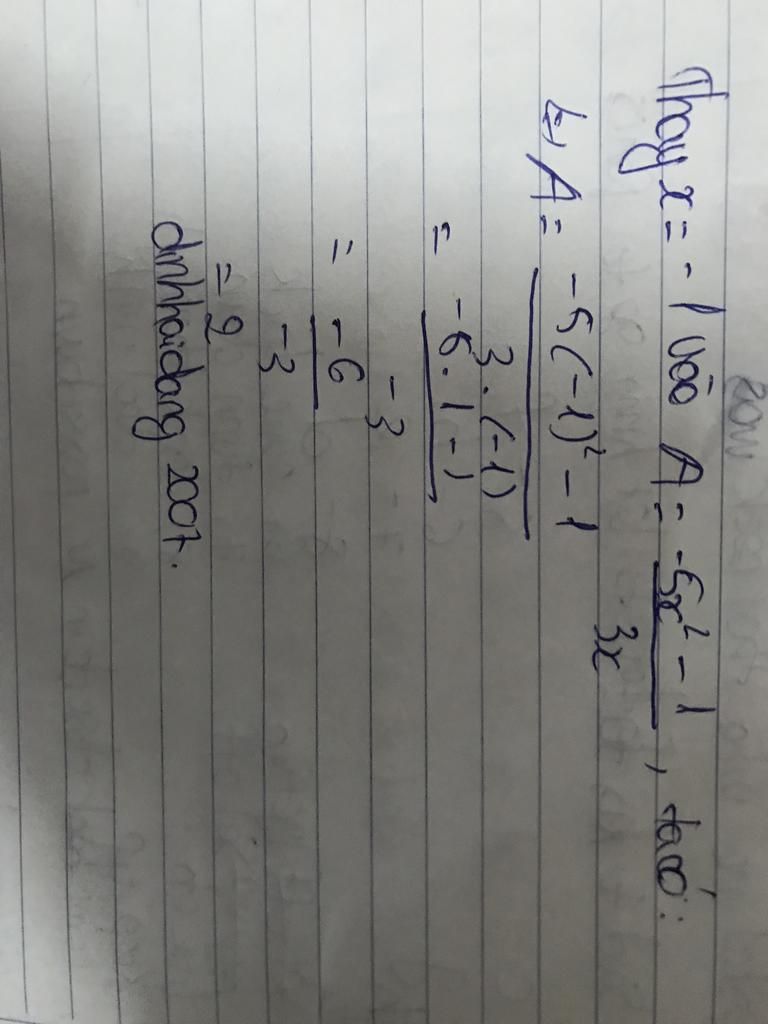 Thay x = -1 vào A = (-5x² - 1)/(3x), ta có:
↳ A = (-5(-1)² - 1)/(3.(-1))
= (-5.1 - 1)/(-3)
= (-6)/(-3)
= 2
dinhhaidang 2007.